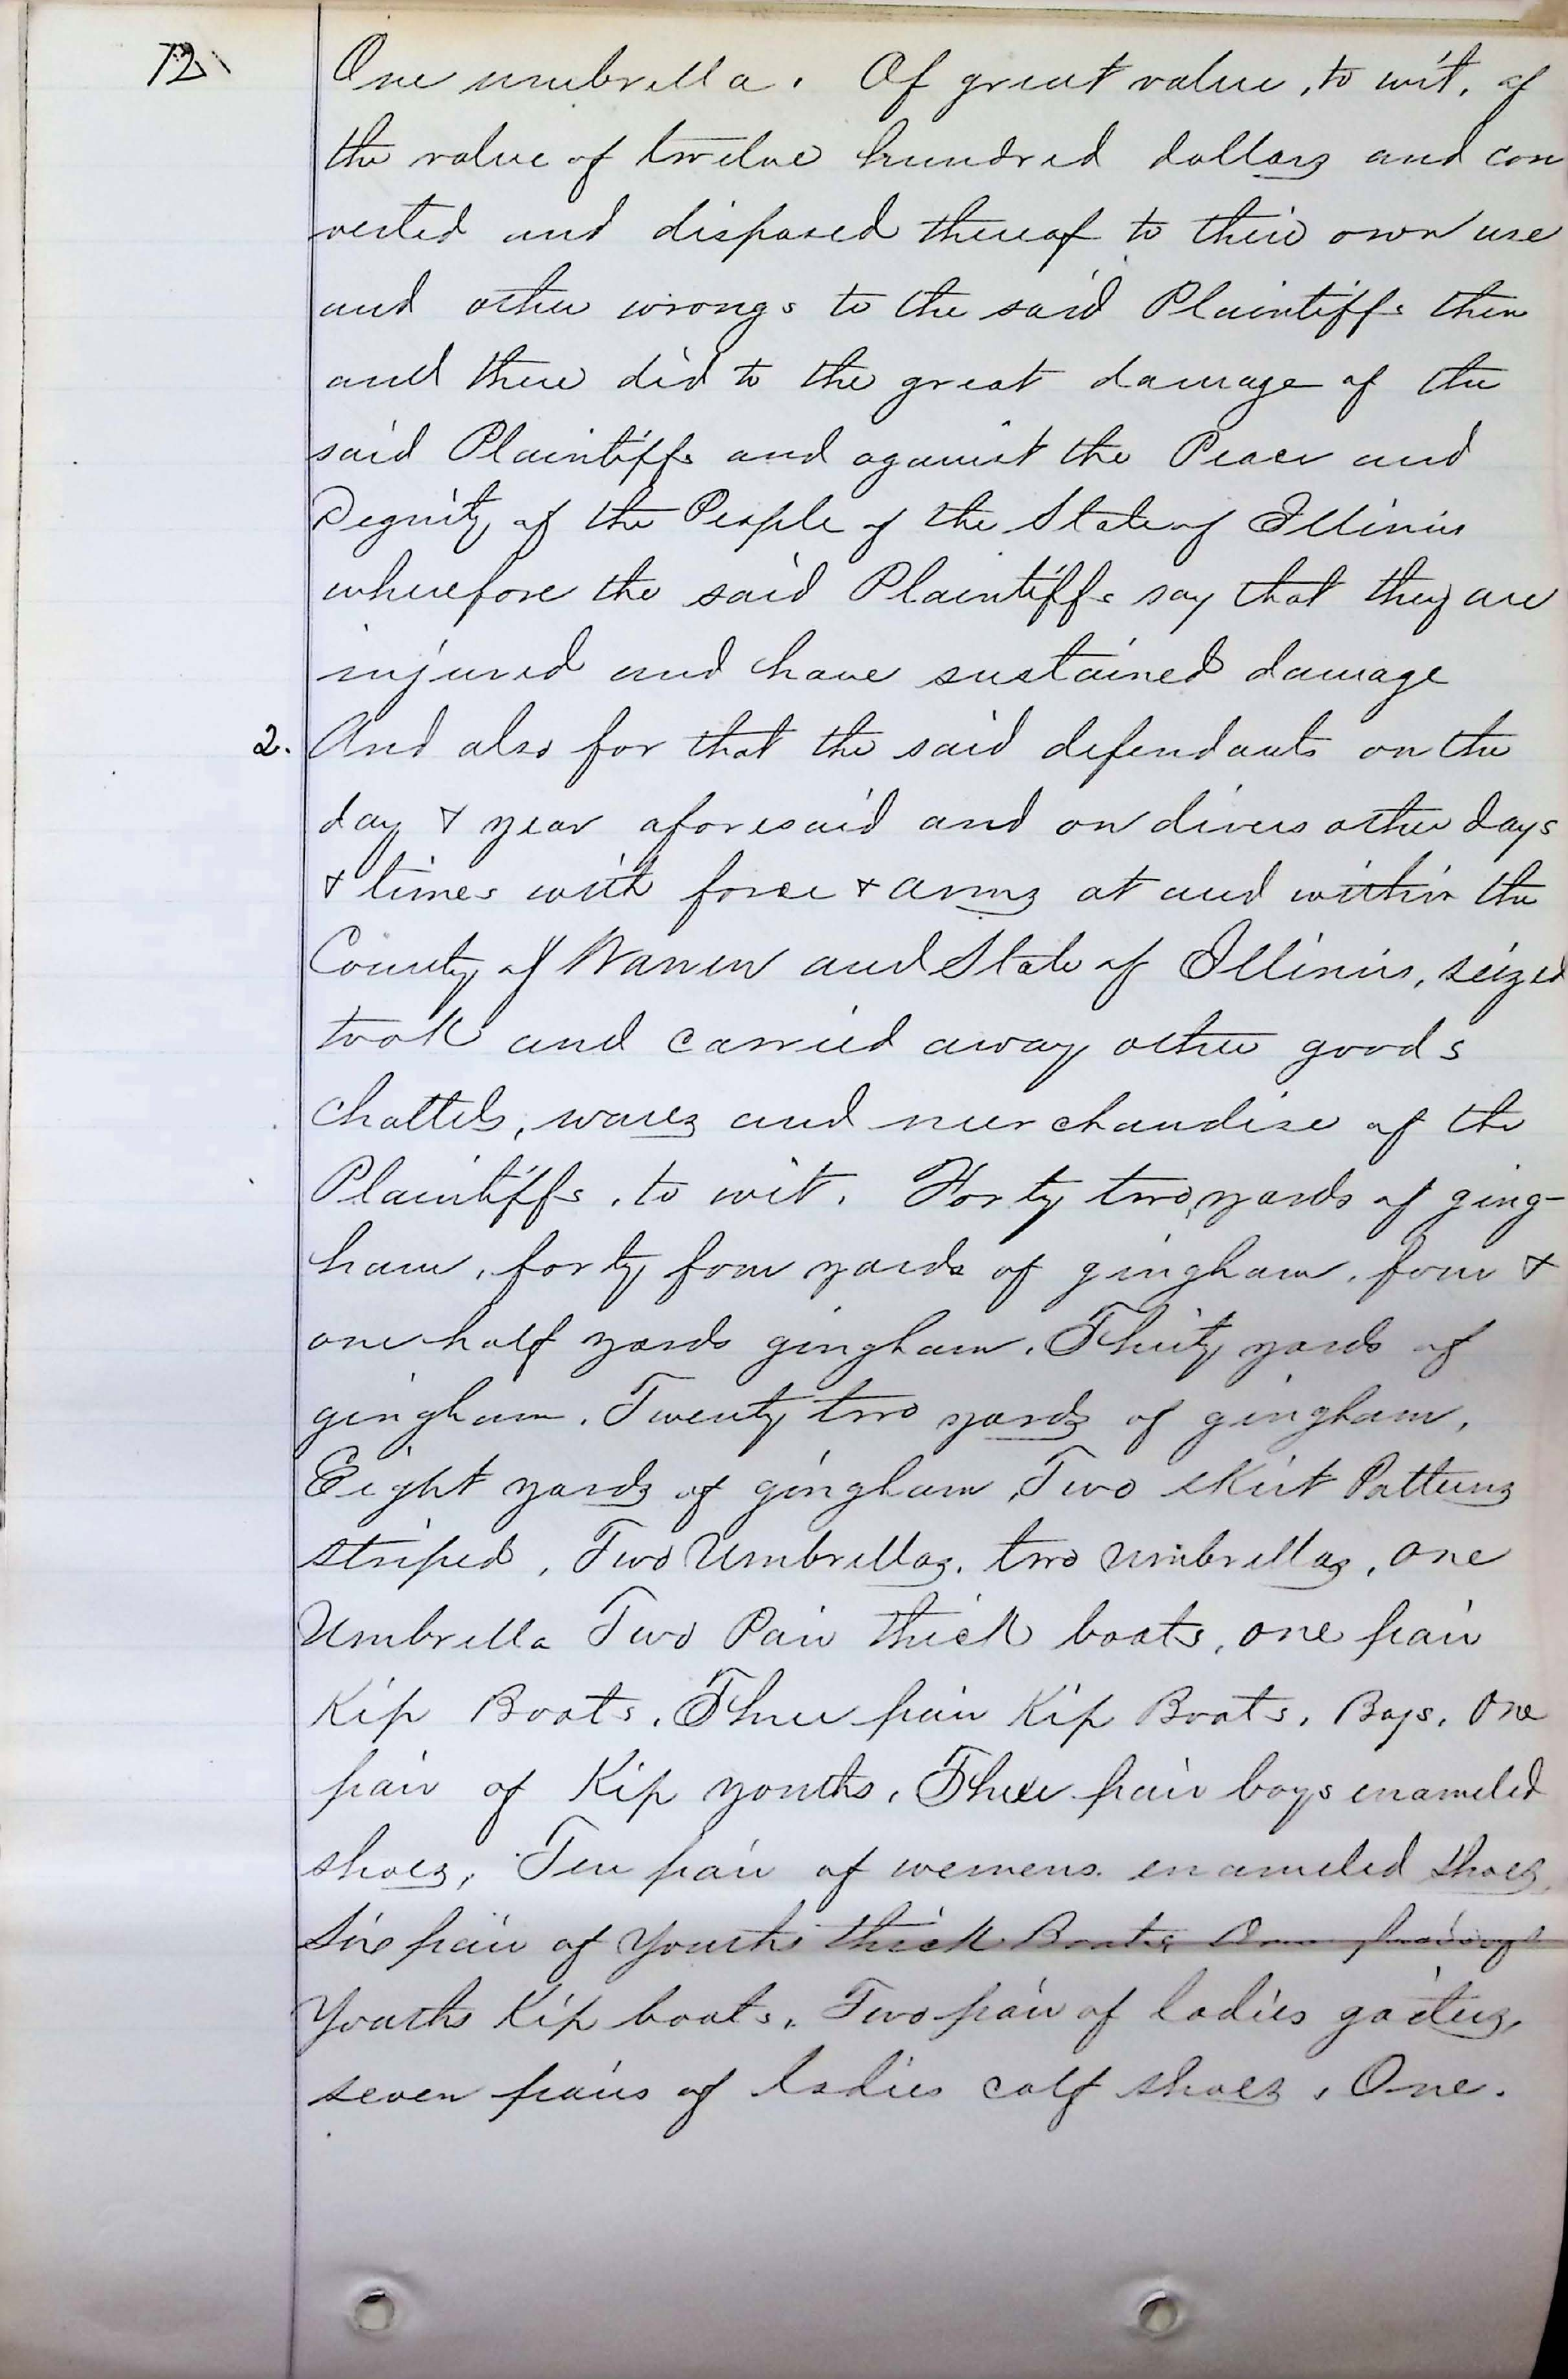 72
One umbrella. Of great value, to wit, of
the value of twelve hundred dollars and con
verted and disposed thereof to their own use
and other wrongs to the said Plaintiffs then
and there did to the great damage of the
said Plaintiffs and against the Peace and
Dignity of the People of the State of Illinois
wherefore the said Plaintiffs say that they are
injured and have sustained damage
2. And also for that the said defendants on the
day & year aforesaid and on divers other days
& times with force & arms at and within the
County of Warren and State of Illinois, seized
took and carried away other goods
Chattels, wares and merchandise of the
Plaintiffs, to wit. Forty two yards of ging-
ham, forty four yards of gingham, four &
one half yards gingham. Thirty yards of
gingham. Twenty two yards of gingham,
Eight yards of gingham, Two skirt Patterns
striped, Two Umbrellas, two umbrellas, one
Umbrella Two Pair thick boots, one pair
Kip Boots, Three pair Kip Boots, Boys, One
pair of Kip youths, Three pair boys enameled
shoes, Ten pair of wemens enameled shoes,
Six pair of Youths thick Boots One
Youths Kip boots, Two pair of ladies gaiters,
seven pairs of ladies calf shoes, One.